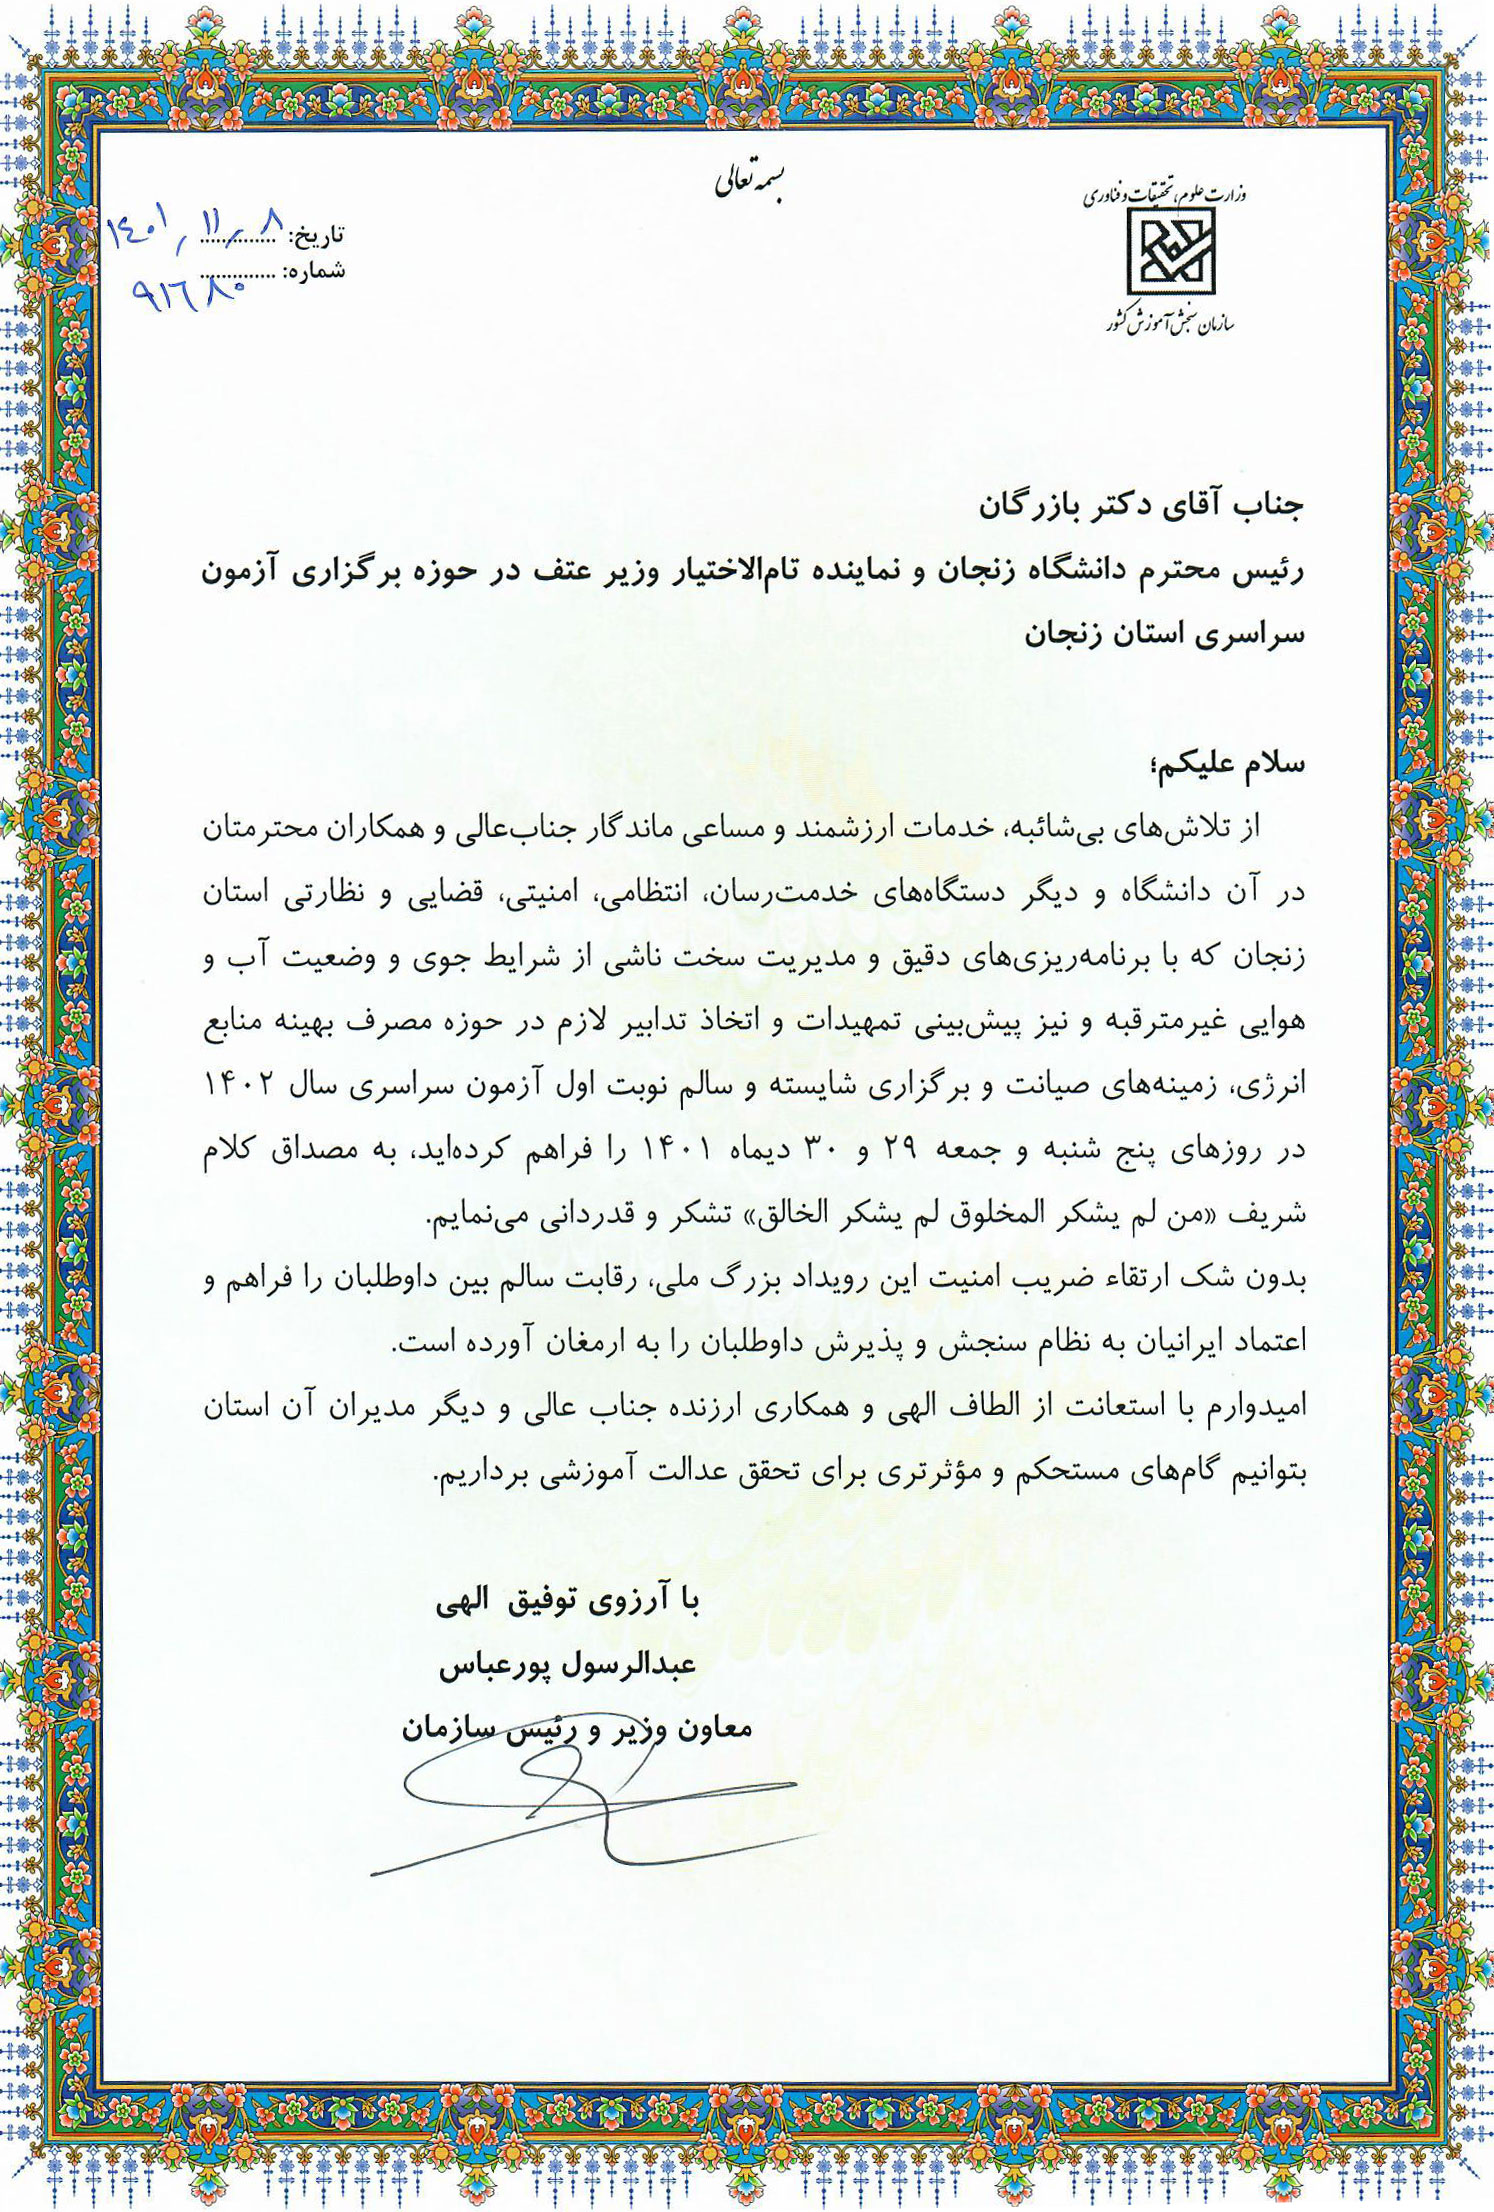 بسمه تعالی
وزارت علوم، تحقیقات و فناوری
سازمان سنجش آموزش کشور
تاریخ: ۱۴۰۱/۱۱/۰۸
شماره: ۹۱۶۸۰
جناب آقای دکتر بازرگان
رئیس محترم دانشگاه زنجان و نماینده تام‌الاختیار وزیر عتف در حوزه برگزاری آزمون
سراسری استان زنجان
سلام علیکم؛
از تلاش‌های بی‌شائبه، خدمات ارزشمند و مساعی ماندگار جناب‌عالی و همکاران محترمتان
در آن دانشگاه و دیگر دستگاه‌های خدمت‌رسان، انتظامی، امنیتی، قضایی و نظارتی استان
زنجان که با برنامه‌ریزی‌های دقیق و مدیریت سخت ناشی از شرایط جوی و وضعیت آب و
هوایی غیرمترقبه و نیز پیش‌بینی تمهیدات و اتخاذ تدابیر لازم در حوزه مصرف بهینه منابع
انرژی، زمینه‌های صیانت و برگزاری شایسته و سالم نوبت اول آزمون سراسری سال ۱۴۰۲
در روزهای پنج شنبه و جمعه ۲۹ و ۳۰ دیماه ۱۴۰۱ را فراهم کرده‌اید، به مصداق کلام
شریف «من لم یشکر المخلوق لم یشکر الخالق» تشکر و قدردانی می‌نمایم.
بدون شک ارتقاء ضریب امنیت این رویداد بزرگ ملی، رقابت سالم بین داوطلبان را فراهم و
اعتماد ایرانیان به نظام سنجش و پذیرش داوطلبان را به ارمغان آورده است.
امیدوارم با استعانت از الطاف الهی و همکاری ارزنده جناب عالی و دیگر مدیران آن استان
بتوانیم گام‌های مستحکم و مؤثرتری برای تحقق عدالت آموزشی برداریم.
با آرزوی توفیق الهی
عبدالرسول پورعباس
معاون وزیر و رئیس سازمان